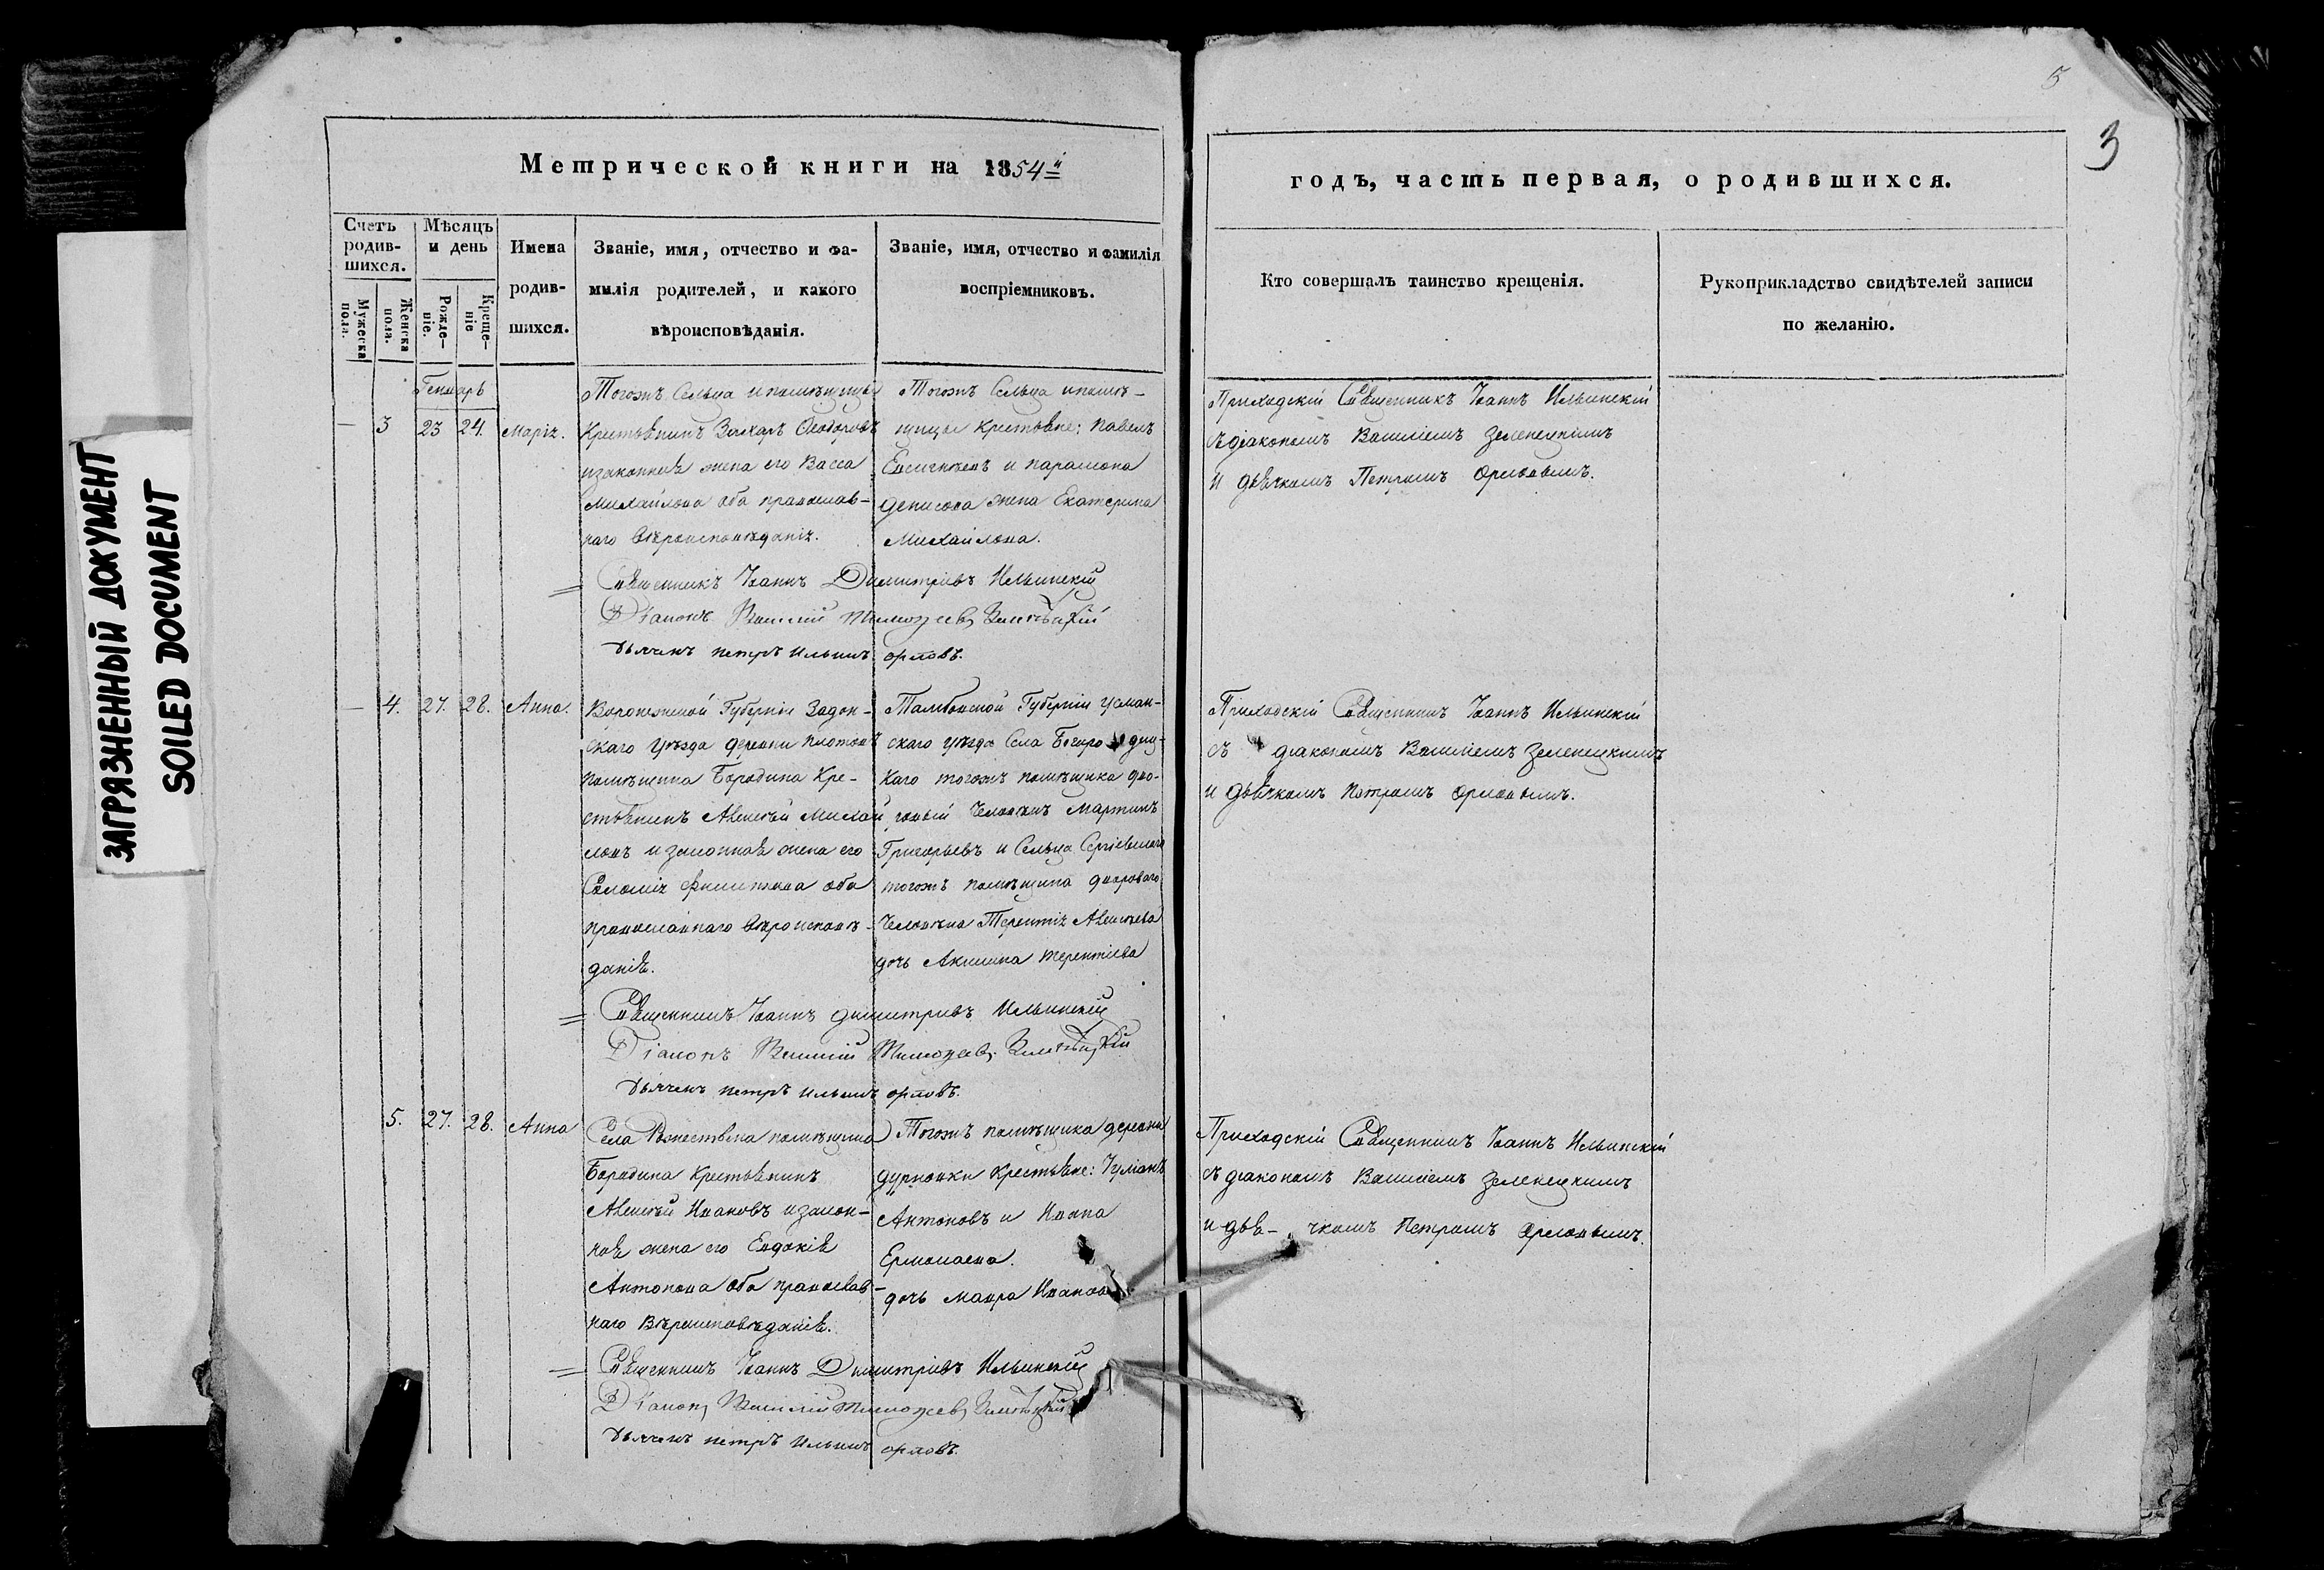 ЗАГРЯЗНЕННЫЙ ДОКУМЕНТ
SOILED DOCUMENT
5
3
Метрической книги на 1854й
Счетъ родив-шихся.
Мужеска пола.
Женска пола.
Мѣсяцъ и день
Рожде-ніе.
Креще-ніе
Имена
родив-
шихся.
Званіе, имя, отчество и фа-
милія родителей, и какого
вѣроисповѣданія.
Званіе, имя, отчество и фамилія
воспріемниковъ.
Генварь
— 3 23 24. Марія.
Тогожъ Сельца и помѣщицы
Крестьянинъ Захаръ Ѳеодоровъ
изаконная жена его Васса
Михайлова оба православ-
наго вѣроисповѣданія.
Тогожъ Сельца ипомѣ-
щицы крестьяне: Павелъ
и парамона
денисова жена Екатерина
Михайлова.
Священникъ Іоаннъ Димитріевъ Ильинскій
Діаконъ Василій Тимоѳеевъ Зеленецкій
Дьячекъ петръ Ильинъ орловъ.
— 4. 27. 28. Анна.
Воронежской Губерніи Задон-
скаго уѣзда деревни
помѣщика Бородина Кре-
стьянинъ Алексѣй Михай
ловъ и законная жена его
Соломія Филиппова оба
православнаго вѣроисповѣ-
данія.
Тамбовской Губерніи усман-
скаго уѣзда Села Богородиц-
каго тогожъ помѣщика дво-
ровый Человѣкъ Мартинъ
Григорьевъ и Сельца Сергіевскаго
тогожъ помѣщика двороваго
Человѣка Терентія Алексѣева
дочь Акилина терентіева
Священникъ Іоаннъ димитріевъ Ильинскій
Діаконъ Василій Тимоѳеевъ Зеленецкій
Дьячекъ петръ ильинъ орловъ.
5. 27. 28. Анна
Села Рожествена помѣщика
Бородина Крестьянинъ
Алексѣй Ивановъ изакон-
ная жена его Евдокія
Антонова оба православ-
наго Вѣроисповѣданія.
Тогожъ помѣщика деревни
дурновки крестьяне: Іуліанъ
Антоновъ и Ивана
Ермолаева.
дочь Мавра Иванова
Священникъ Іоаннъ Димитріевъ Ильинскій
Діаконъ Василій Тимоѳеевъ Зеленецкій
Дьячекъ петръ Ильинъ орловъ.
годъ, часть первая, о родившихся.
Кто совершалъ таинство крещенія.
Рукоприкладство свидѣтелей записи
по желанію.
Приходскій Священникъ Іоаннъ Ильинскій
съдіакономъ Василіемъ Зеленецкимъ
И дьячкомъ Петромъ Орловымъ.
Приходскій Священникъ Іоаннъ Ильинскій
съ діакономъ Василіемъ Зеленецкимъ
и дьячкомъ Петромъ Орловымъ.
Приходскій Священникъ Іоаннъ Ильинскій
съ діакономъ Василіемъ Зеленецкимъ
и дья- чкомъ Петромъ Орловымъ.